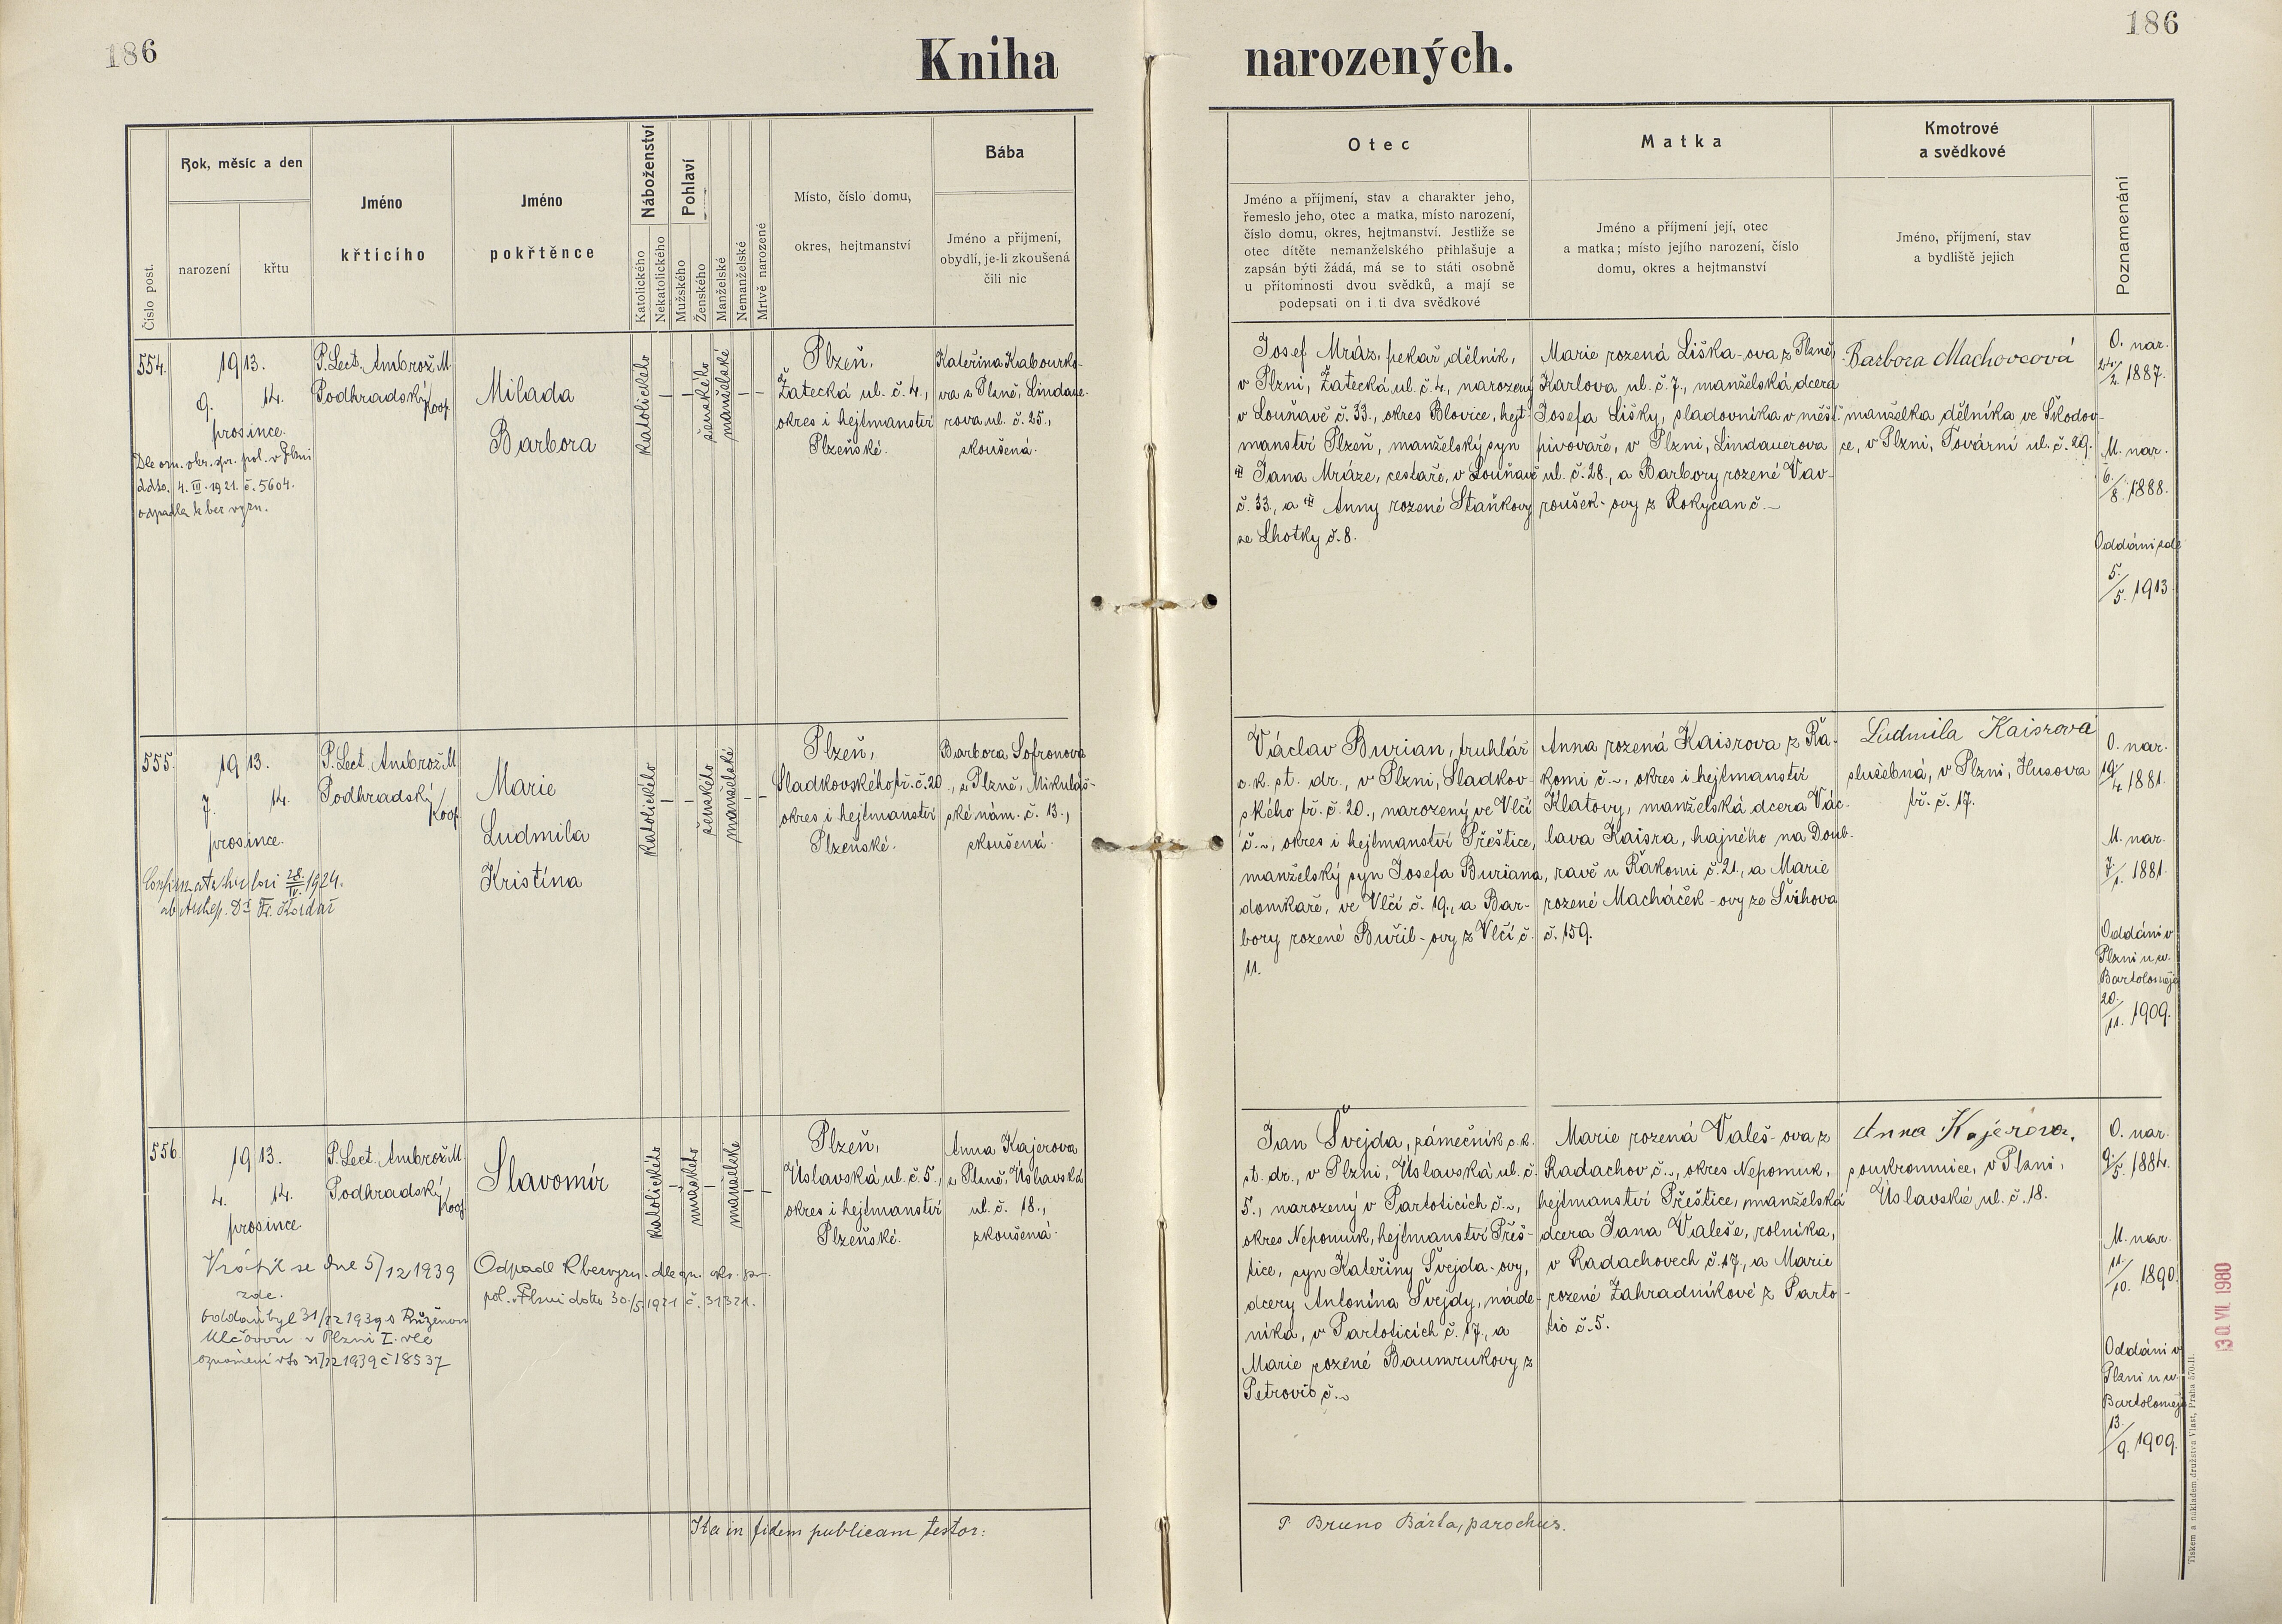 186
Kniha narozených.
186
Číslo post.
Rok, měsíc a den
narození
křtu
Jméno
křtícího
Jméno
pokřtěnce
Náboženství
Katolického
Nekatolického
Pohlaví
Mužského
Ženského
Manželské
Nemanželské
Mrtvě narozené
Místo, číslo domu,
okres, hejtmanství
Bába
Jméno a příjmení,
obydlí, je-li zkoušená
čili nic
Otec
Jméno a příjmení, stav a charakter jeho,
řemeslo jeho, otec a matka, místo narození,
číslo domu, okres, hejtmanství. Jestliže se
otec dítěte nemanželského přihlašuje a
zapsán býti žádá, má se to státi osobně
u přítomnosti dvou svědků, a mají se
podepsati on i ti dva svědkové
Matka
Jméno a příjmení její, otec
a matka; místo jejího narození, číslo
domu, okres a hejtmanství
Kmotrové
a svědkové
Jméno, příjmení, stav
a bydliště jejich
Poznamenání
554.
1913.
9. 14.
prosince.
Dle ozn. okr. spr. pol. v Plzni
ddto. 4. III. 1921. č. 5604.
odpadla k bez vyzn.
P. Lect. Ambrož M.
Podhradský
koop.
Milada
Barbora
katolického
ženského
manželské
Plzeň,
Žatecká ul. č. 4.,
okres i hejtmanství
Plzeňské.
Kateřina Kabourko-
va z Plzně, Lindaue-
rova ul. č. 25.,
zkoušená.
Josef Mráz, pekař, dělník,
v Plzni, Žatecká ul. č. 4., narozený
v Louňavě č. 33., okres Blovice, hejt-
manství Plzeň, manželský syn
Jana Mráze, cestaře, v Louňavě
č. 33., a Anny rozené Staňkovy
ze Lhotky č. 8.
Marie rozená Liška-ova z Plzně,
Karlova ul. č. 7., manželská dcera
Josefa Lišky, sladovníka v měšť.
pivovaře, v Plzni, Lindauerova
ul. č. 28., a Barbory rozené Vav-
roušek-ovy z Rokycan č. ~
Barbora Machovcová
manželka dělníka ve Škodov-
ce, v Plzni, Tovární ul. č. 29.
O. nar.
24./2. 1887.
M. nar.
6./8. 1888.
Oddáni zde
5./5. 1913.
555.
1913.
7. 14.
prosince.
28./IV. 1924.
P. Lect. Ambrož M.
Podhradský
koop.
Marie
Ludmila
Kristina
katolického
ženského
manželské
Plzeň,
Sladkovského tř. č. 20.
okres i hejtmanství
Plzeňské.
Barbora Sofronova
, z Plzně, Mikuláš-
ské nám. č. 13.,
zkoušená.
Václav Burian, truhlář
c. k. st. dr., v Plzni, Sladkov-
ského tř. č. 20., narozený ve Vlčí
č. ~, okres i hejtmanství Přeštice,
manželský syn Josefa Buriana,
domkaře, ve Vlčí č. 19., a Bar-
bory rozené Buřil-ovy z Vlčí č.
11.
Anna rozená Kaisrova z Řa-
komi č. ~, okres i hejtmanství
Klatovy, manželská dcera Vác-
lava Kaisra, hajného na Doub-
ravě u Řakomi č. 21., a Marie
rozené Macháček-ovy ze Švihova
č. 159.
Ludmila Kaisrová
služebná, v Plzni, Husova
tř. č. 17.
O. nar.
19./4. 1881.
M. nar.
7./1. 1881.
Oddáni v
Plzni u sv.
Bartoloměje
20./11. 1909.
556.
1913.
4. 14.
prosince.
Vrátil se dne 5/12 1939
zde.
oddán byl 31/12 1939 s Růženou
Vlčkovou v Plzni I. dle
oznámení dto 31/12 1939 č 18537
P. Lect. Ambrož M.
Podhradský
koop.
Slavomír
Odpadl k bezvyzn. dle ozn. okr. spr.
pol. v Plzni ddto 30./5 1921 č. 31321.
katolického
mužského
manželské
Plzeň,
Úslavská ul. č. 5.,
okres i hejtmanství
Plzeňské.
Anna Kajerova
z Plzně, Úslavská
ul. č. 18.,
zkoušená.
Jan Švejda, zámečník c. k.
st. dr., v Plzni, Úslavská ul. č.
5., narozený v Partoticích č. ~,
okres Nepomuk, hejtmanství Přeš-
tice, syn Kateřiny Švejda-ovy,
dcery Antonína Švejdy, náde-
níka, v Partoticích č. 17., a
Marie rozené Baumrukovy z
Petrovic č. ~
Marie rozená Valeš-ova z
Radachov č. ~, okres Nepomuk,
hejtmanství Přeštice, manželská
dcera Jana Valeše, rolníka,
v Radachovech č. 17., a Marie
rozené Zahradníkové z Parto-
tic č. 5.
Anna Kajerova,
soukromnice, v Plzni,
Úslavské ul. č. 18.
O. nar.
9./5. 1884.
M. nar.
11./10. 1890.
Oddáni v
Plzni u sv.
Bartoloměje
13./9. 1909.
Ita in fidem publicam testor:
P. Bruno Bárta, parochus.
30 VII. 1980
Tiskem a nákladem družstva Vlast, Praha 570-II.